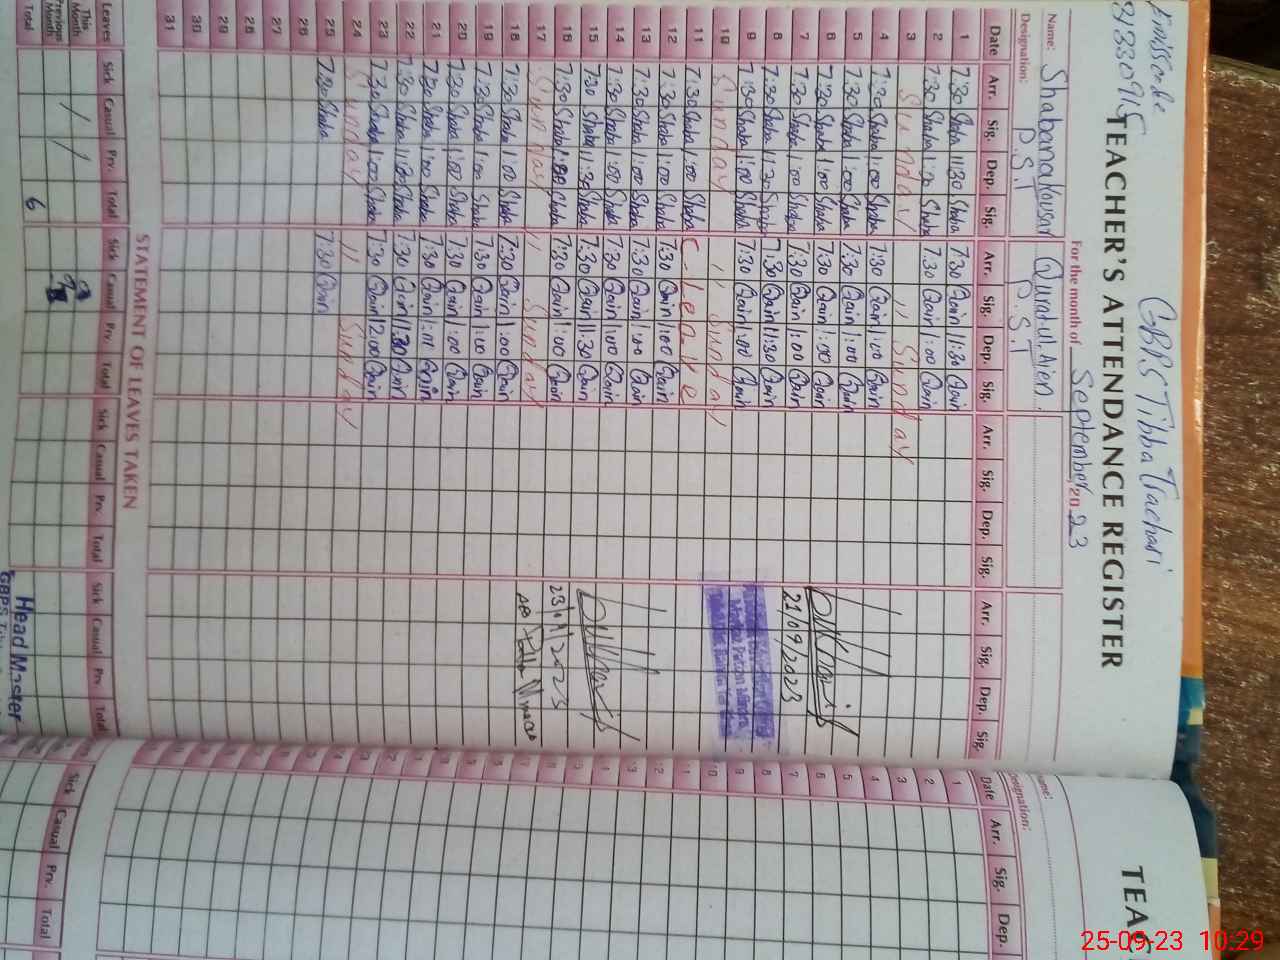 Emiss code
GBPS Tibba Trachari
TEACHER'S ATTENDANCE REGISTER
For the month of September, 2023
Name: Shabana Kousar Qurat ul Aien
Designation: P.S.T P.S.T
Date Arr. Sig. Dep. Sig. Arr. Sig. Dep. Sig. Arr. Sig. Dep. Sig. Arr. Sig. Dep. Sig.
1 7:30 Shaba 11:30 Shaba 7:30 Qain 11:30 Qain
2 7:30 Shaba 1:00 Shaba 7:30 Qain 1:00 Qain
3 Sunday // Sunday
4 7:30 Shaba 1:00 Shaba 7:30 Qain 1:00 Qain
5 7:30 Shaba 1:00 Shaba 7:30 Qain 1:00 Qain
6 7:30 Shaba 1:00 Shaba 7:30 Qain 1:00 Qain
7 7:30 Shaba 1:00 Shaba 7:30 Qain 1:00 Qain
21/09/2023
8 7:30 Shaba 11:30 Shaba 7:30 Qain 11:30 Qain
9 7:30 Shaba 1:00 Shaba 7:30 Qain 1:00 Qain
10 Sunday // Sunday
11 7:30 Shaba 1:00 Shaba C. Leave
12 7:30 Shaba 1:00 Shaba 7:30 Qain 1:00 Qain
13 7:30 Shaba 1:00 Shaba 7:30 Qain 1:00 Qain
14 7:30 Shaba 1:00 Shaba 7:30 Qain 1:00 Qain
15 7:30 Shaba 11:30 Shaba 7:30 Qain 11:30 Qain
16 7:30 Shaba 1:00 Shaba 7:30 Qain 1:00 Qain
17 Sunday // Sunday
18 7:30 Shaba 1:00 Shaba 7:30 Qain 1:00 Qain
19 7:30 Shaba 1:00 Shaba 7:30 Qain 1:00 Qain
20 7:30 Shaba 1:00 Shaba 7:30 Qain 1:00 Qain
21 7:30 Shaba 1:00 Shaba 7:30 Qain 1:00 Qain
22 7:30 Shaba 11:30 Shaba 7:30 Qain 11:30 Qain
23 7:30 Shaba 1:00 Shaba 7:30 Qain 12:00 Qain
24 Sunday // Sunday
25 7:30 Shaba 7:30 Qain
26
27
28
29
30
31
STATEMENT OF LEAVES TAKEN
Leaves Sick Casual Prv. Total Sick Casual Prv. Total Sick Casual Prv. Total Sick Casual Prv. Total
This Month
Previous Month
Total 6
Head Master
TEAC
Name:
Designation:
Date Arr. Sig. Dep.
1
2
3
4
5
6
7
8
9
10
11
12
13
Sick Casual Prv. Total
25-09-23 10:29